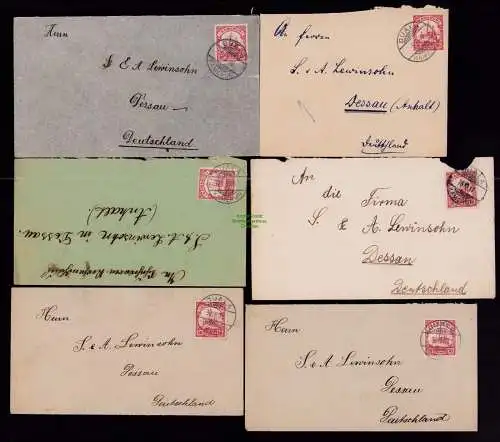 Herrn
S & A Lewinsohn
Dessau
Deutschland
An Herren
S. & A. Lewinsohn
Dessau (Anhalt)
Deutschland
An
S. & A. Lewinsohn in Dessau.
(Anhalt)
An
die Firma
S. & A. Lewinsohn
Dessau
Deutschland
Herrn
S. & A. Lewinsohn
Dessau
Deutschland
Herrn
S. & A. Lewinsohn
Dessau
Deutschland